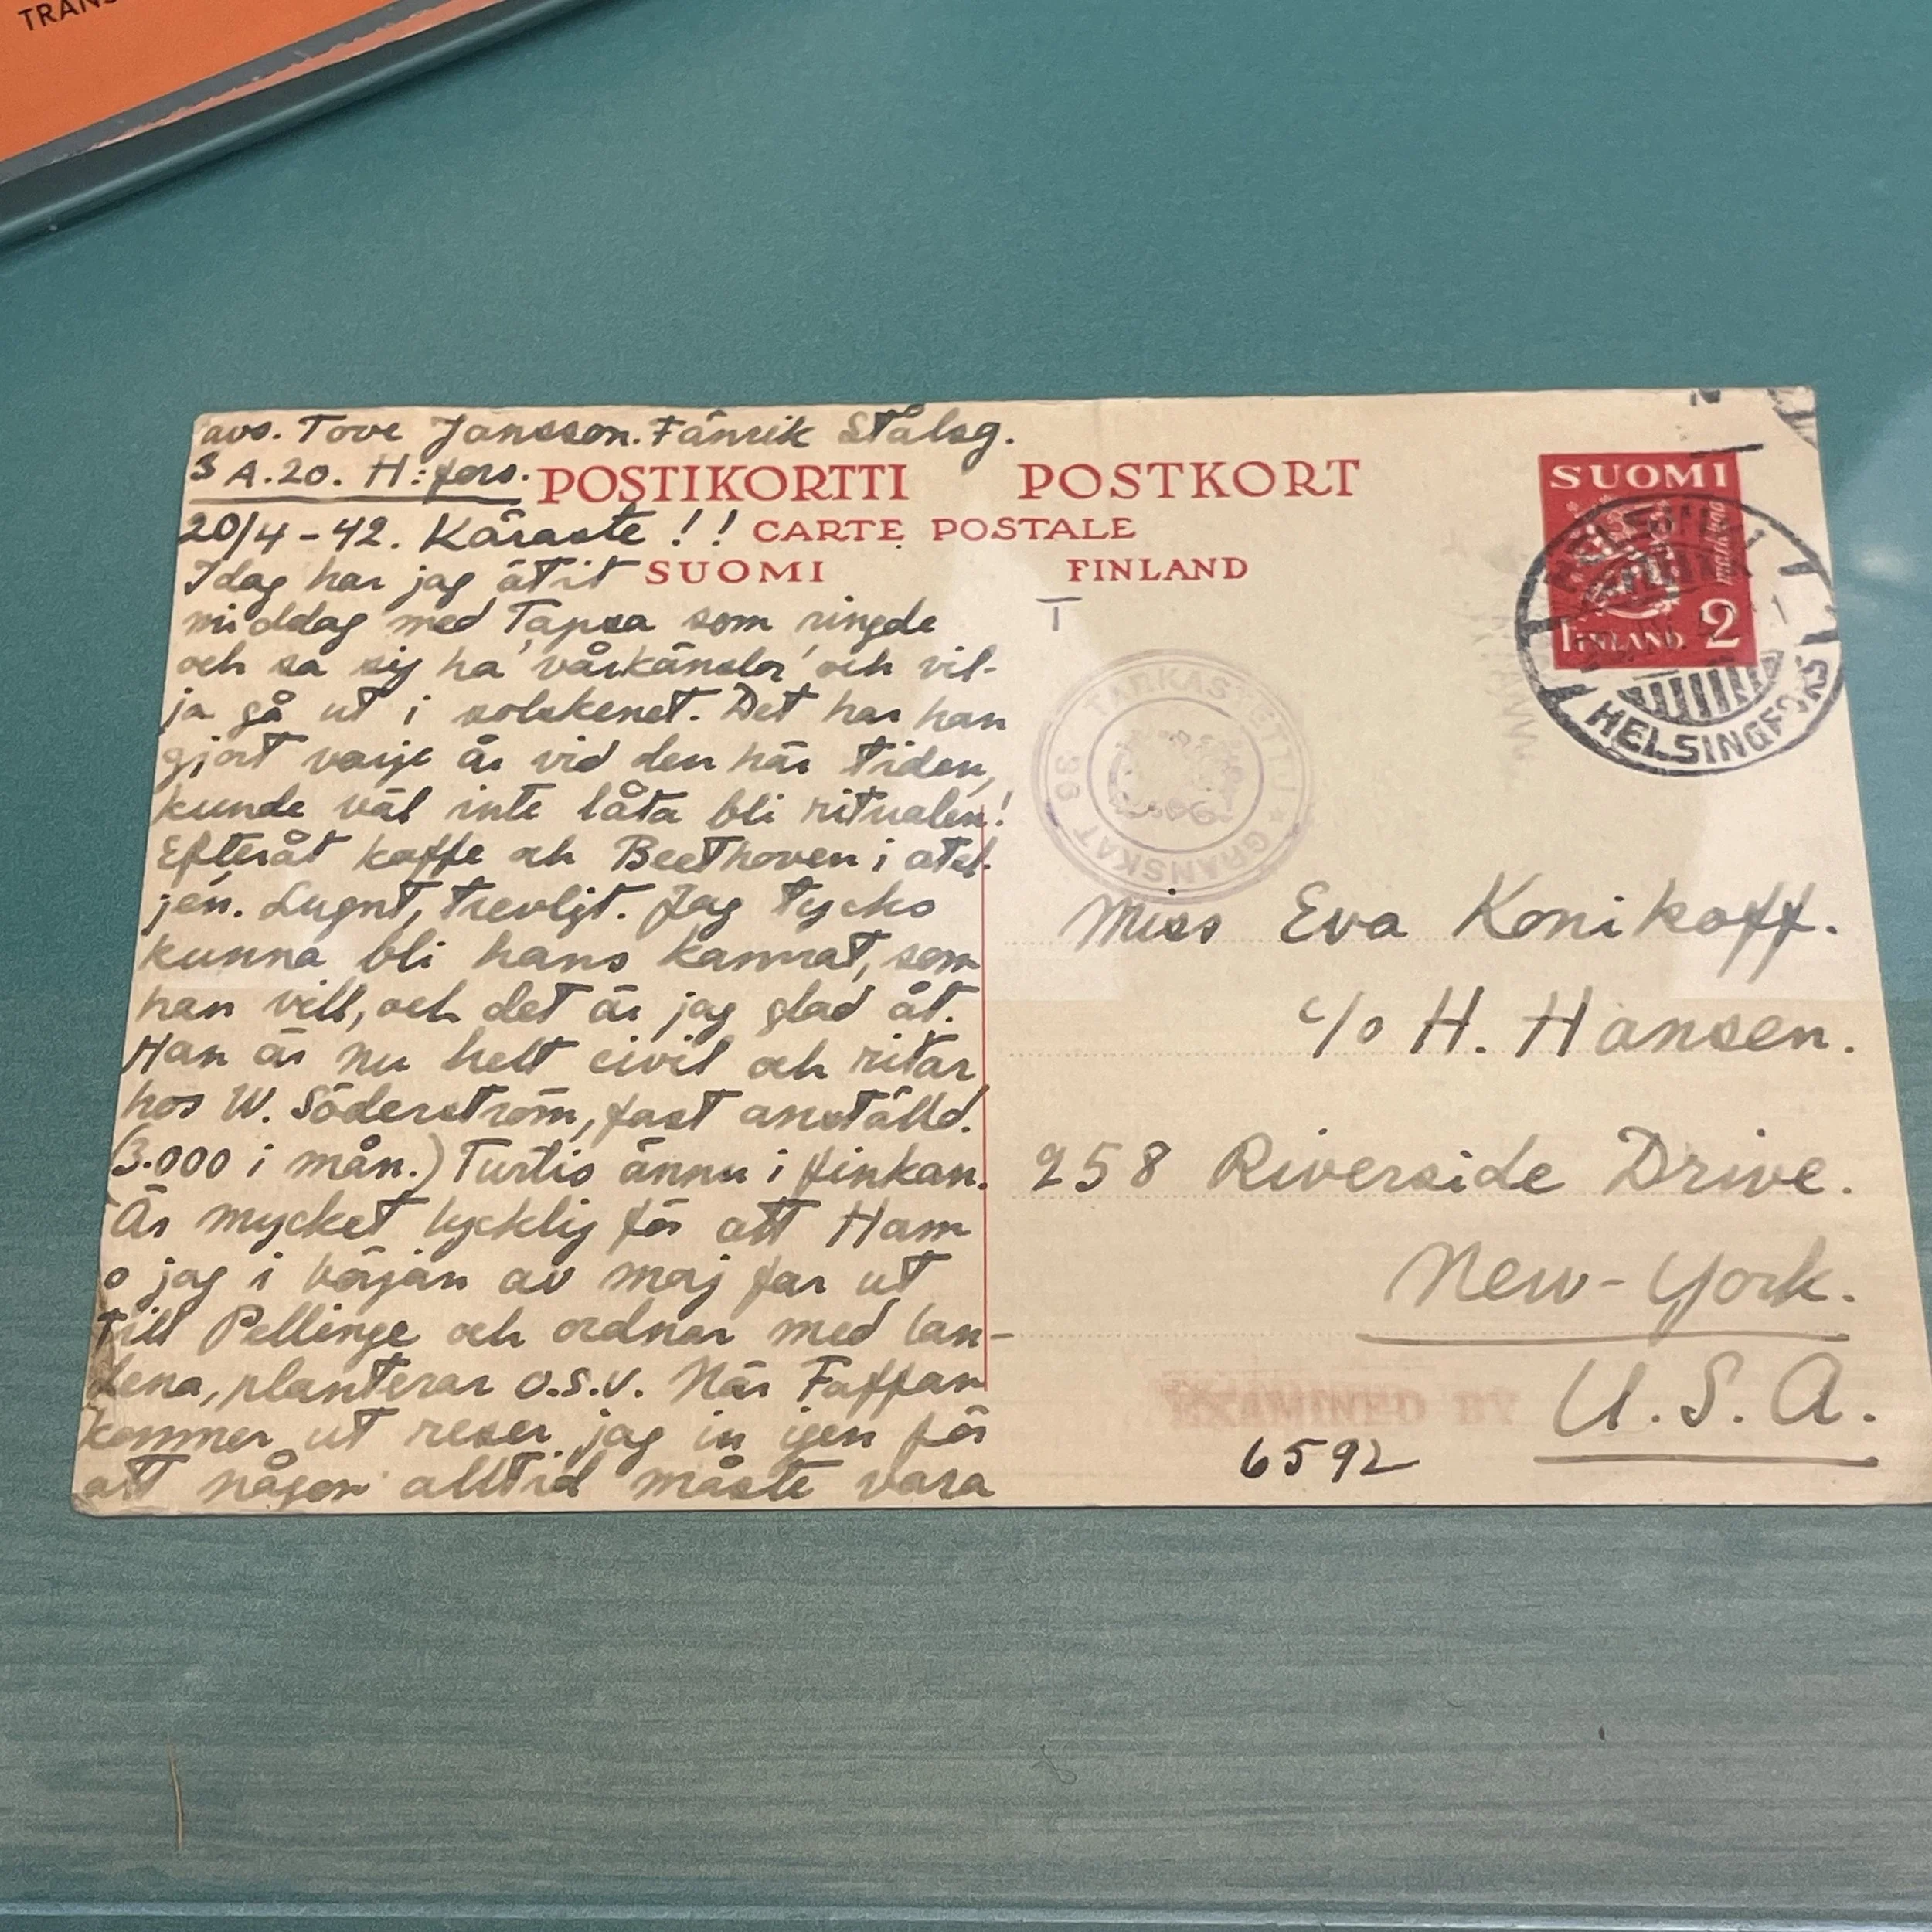 TRANS
avs. Tove Jansson. Fänrik Stålsg.
3 A.20. H:fors.
POSTIKORTTI POSTKORT
CARTE POSTALE
SUOMI FINLAND
20/4-42. Käraste!!
Idag har jag ätit
middag med Tapsa som ringde
och sa sig ha 'vårkänslor' och vil-
ja gå ut i solskenet. Det har han
gjort varje år vid den här tiden,
kunde väl inte låta bli ritualen!
Efteråt kaffe och Beethoven i atel-
jén. Lugnt, trevligt. Jag tycks
kunna bli hans kamrat, som
han vill, och det är jag glad åt.
Han är nu helt civil och ritar
hos W. Söderström, fast anställd.
(3.000 i mån.) Turtis ännu i finkan.
Är mycket lycklig för att Ham
o jag i början av maj far ut
till Pellinge och ordnar med lan-
dena, planterar o.s.v. När Faffan
kommer ut reser jag in igen för
att någon alltid måste vara
SUOMI
markkaa
FINLAND 2
HELSINKI
HELSINGFORS
T
TARKASTETTU * GRANSKAT 36
Miss Eva Konikoff.
c/o H. Hansen.
258 Riverside Drive.
New-York.
U.S.A.
EXAMINED BY
6592